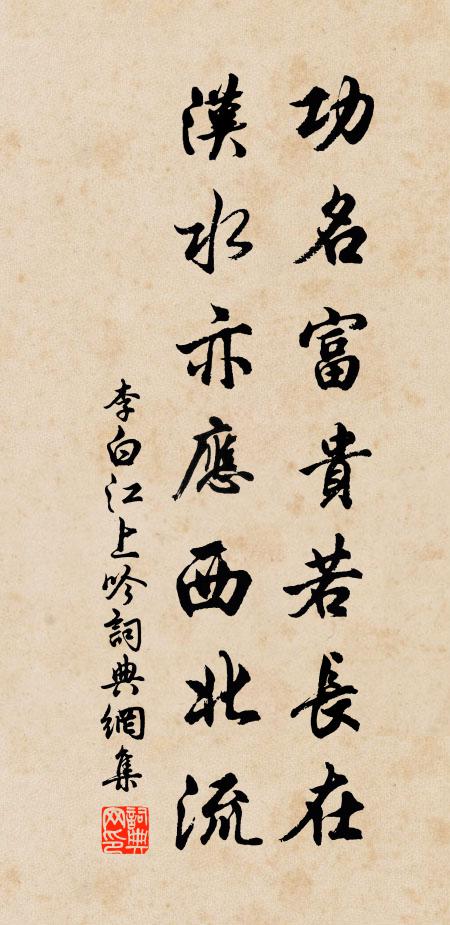 功名富貴若長在
漢水亦應西北流
李白江上吟詞典網集
詞典網印